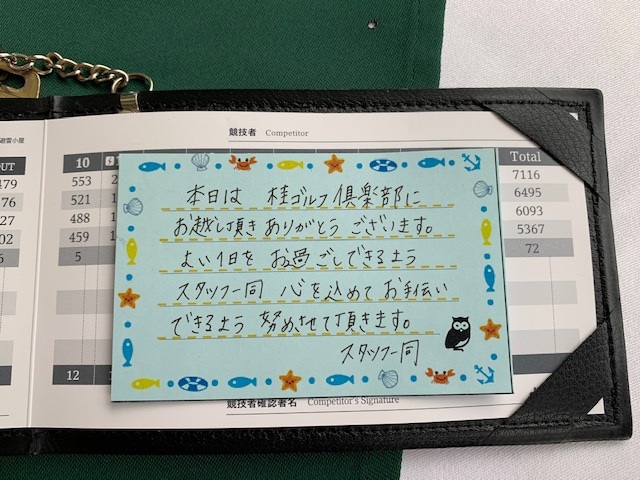 競技者 Competitor
避雷小屋
OUT 10 Total
479 553 7116
76 521 6495
27 488 6093
02 459 5367
6 5 72
本日は 桂ゴルフ倶楽部に
お越し頂きありがとうございます。
よい1日を お過ごしできるよう
スタッフ一同 心を込めてお手伝い
できるよう 努めさせて頂きます。
スタッフ一同
12
競技者確認署名 Competitor's Signature